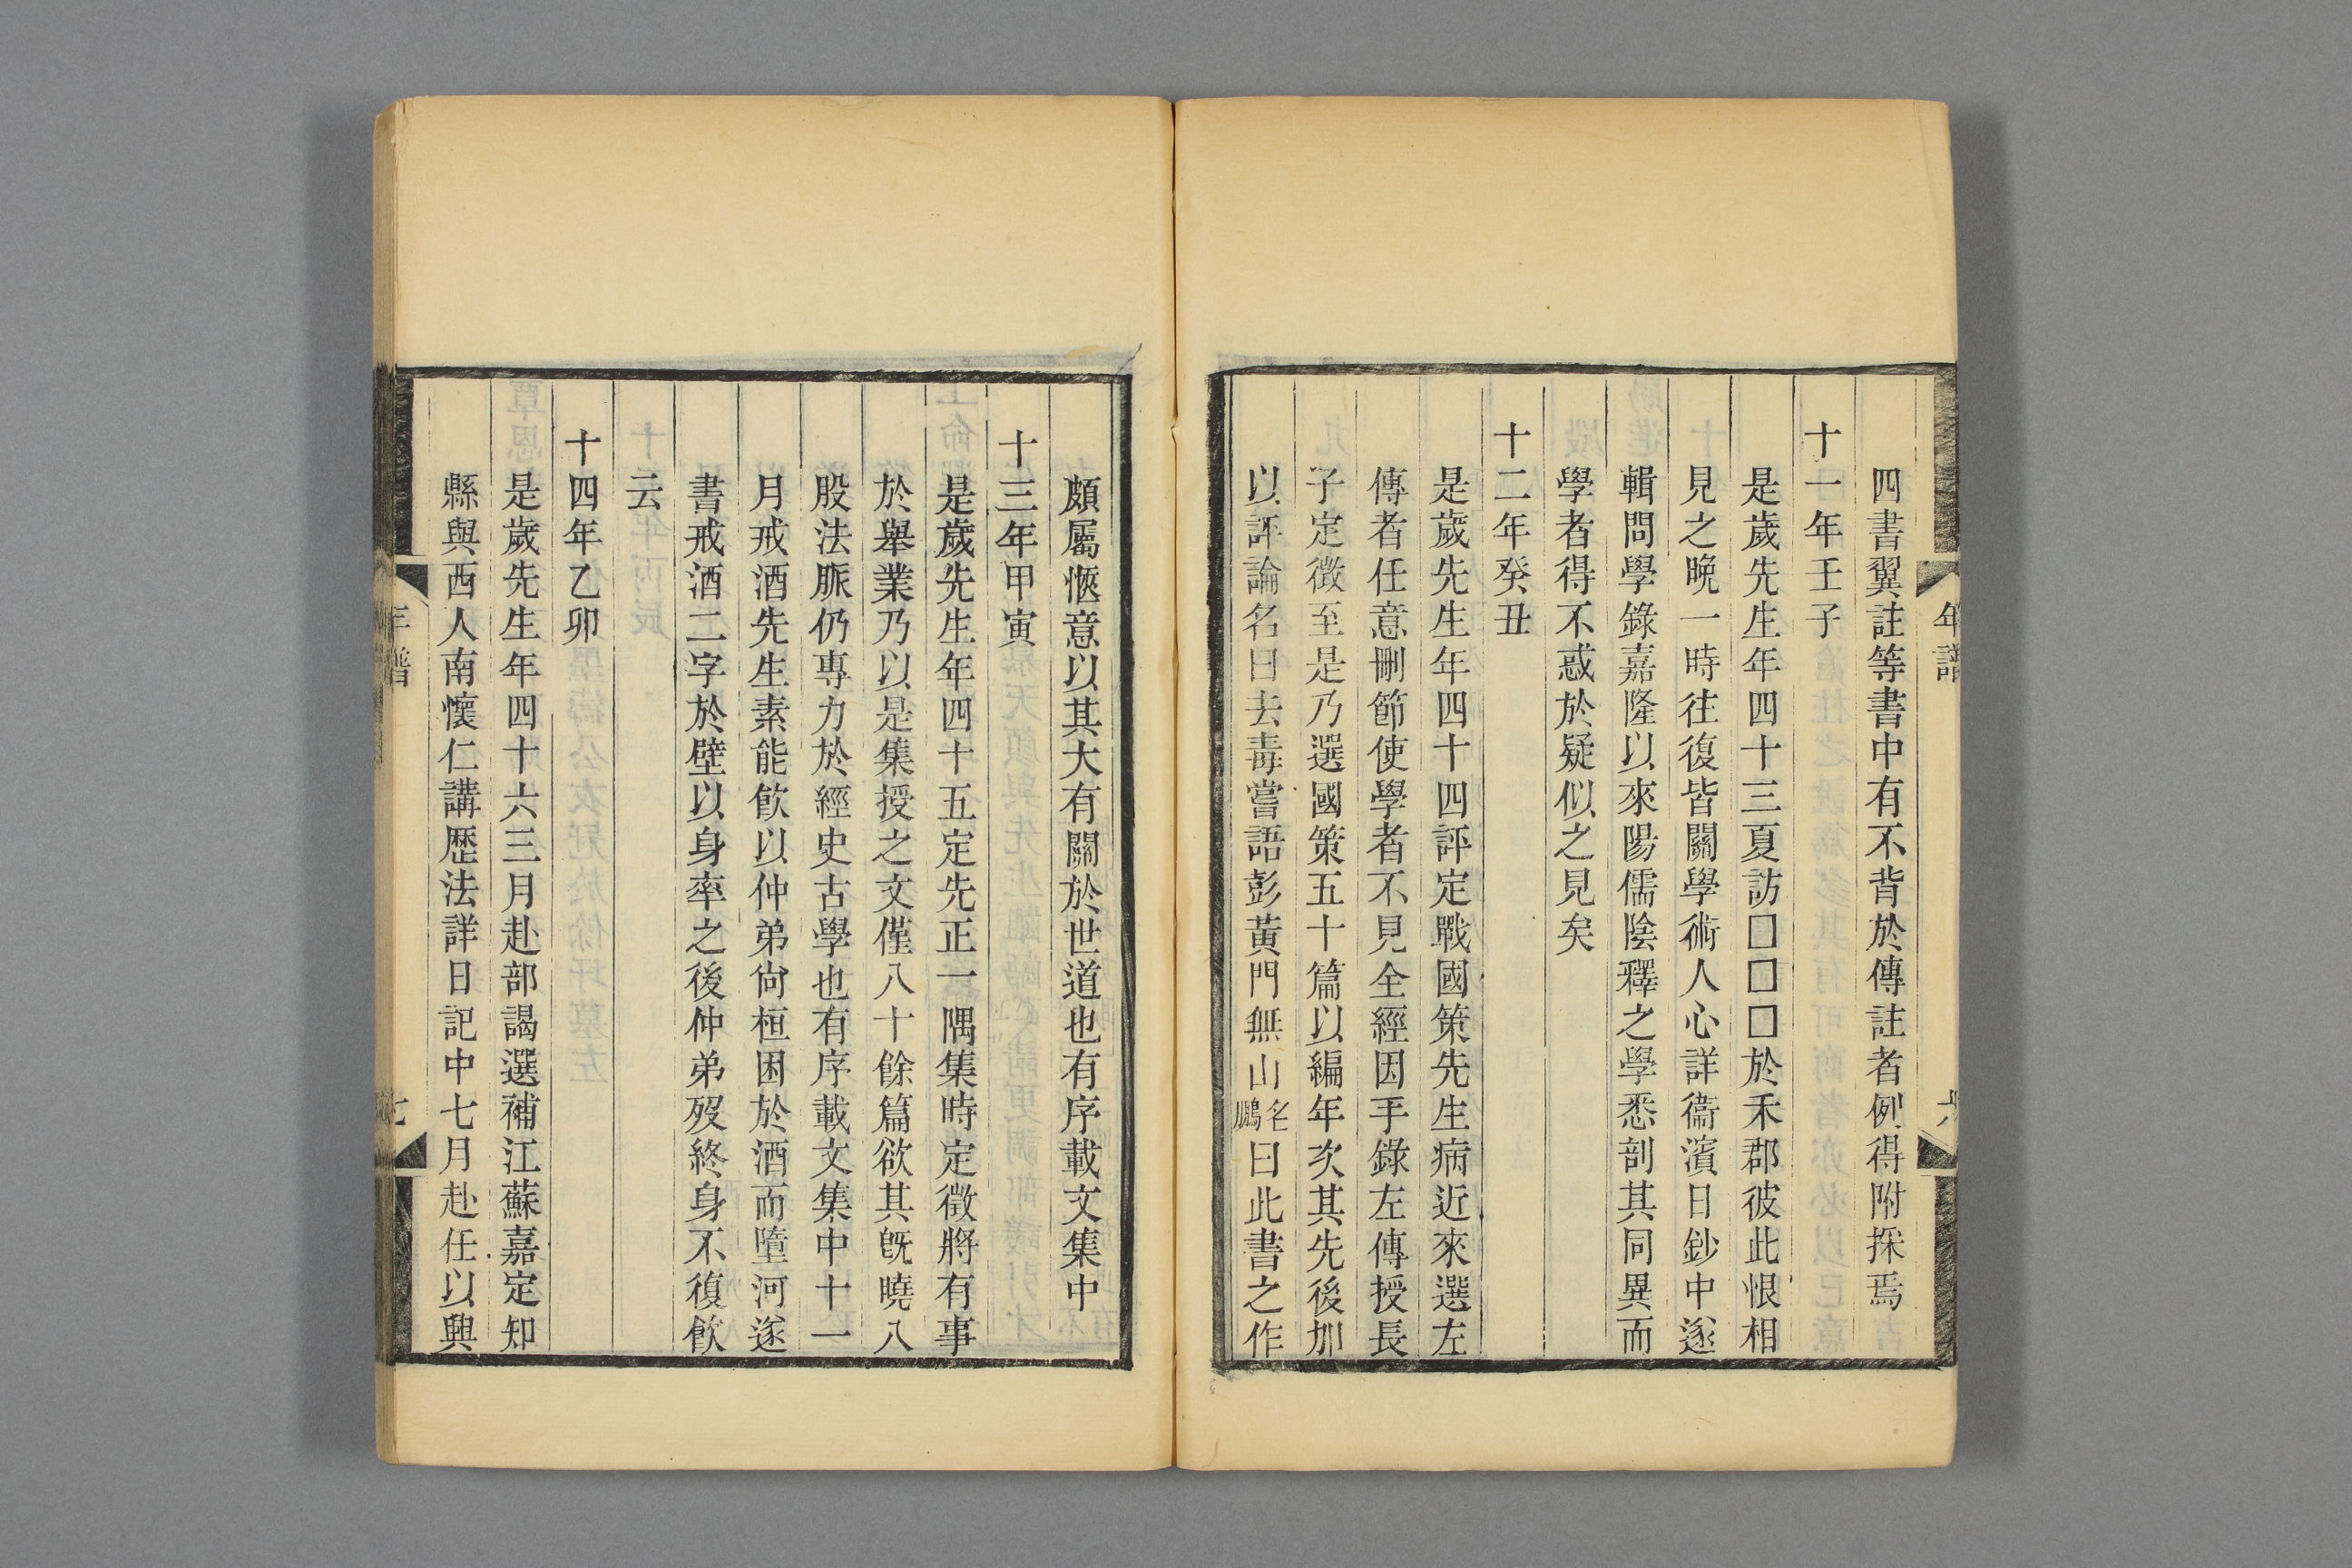 年譜
六
四書翼註等書中有不背於傳註者例得附採焉
十一年壬子
是歲先生年四十三夏訪□□□於禾郡彼此恨相
見之晚一時往復皆關學術人心詳衞濱日鈔中遂
輯問學錄嘉隆以來陽儒陰釋之學悉剖其同異而
學者得不惑於疑似之見矣
十二年癸丑
是歲先生年四十四評定戰國策先生病近來選左
傳者任意刪節使學者不見全經因手錄左傳授長
子定徵至是乃選國策五十篇以編年次其先後加
以評論名曰去毒嘗語彭黃門無山名鵬曰此書之作
頗屬愜意以其大有關於世道也有序載文集中
十三年甲寅
是歲先生年四十五定先正一隅集時定徵將有事
於舉業乃以是集授之文僅八十餘篇欲其旣曉八
股法脈仍專力於經史古學也有序載文集中十一
月戒酒先生素能飮以仲弟尙桓困於酒而墮河遂
書戒酒二字於壁以身率之後仲弟歿終身不復飮
云
十四年乙卯
是歲先生年四十六三月赴部謁選補江蘇嘉定知
縣與西人南懷仁講歷法詳日記中七月赴任以興
年譜
七